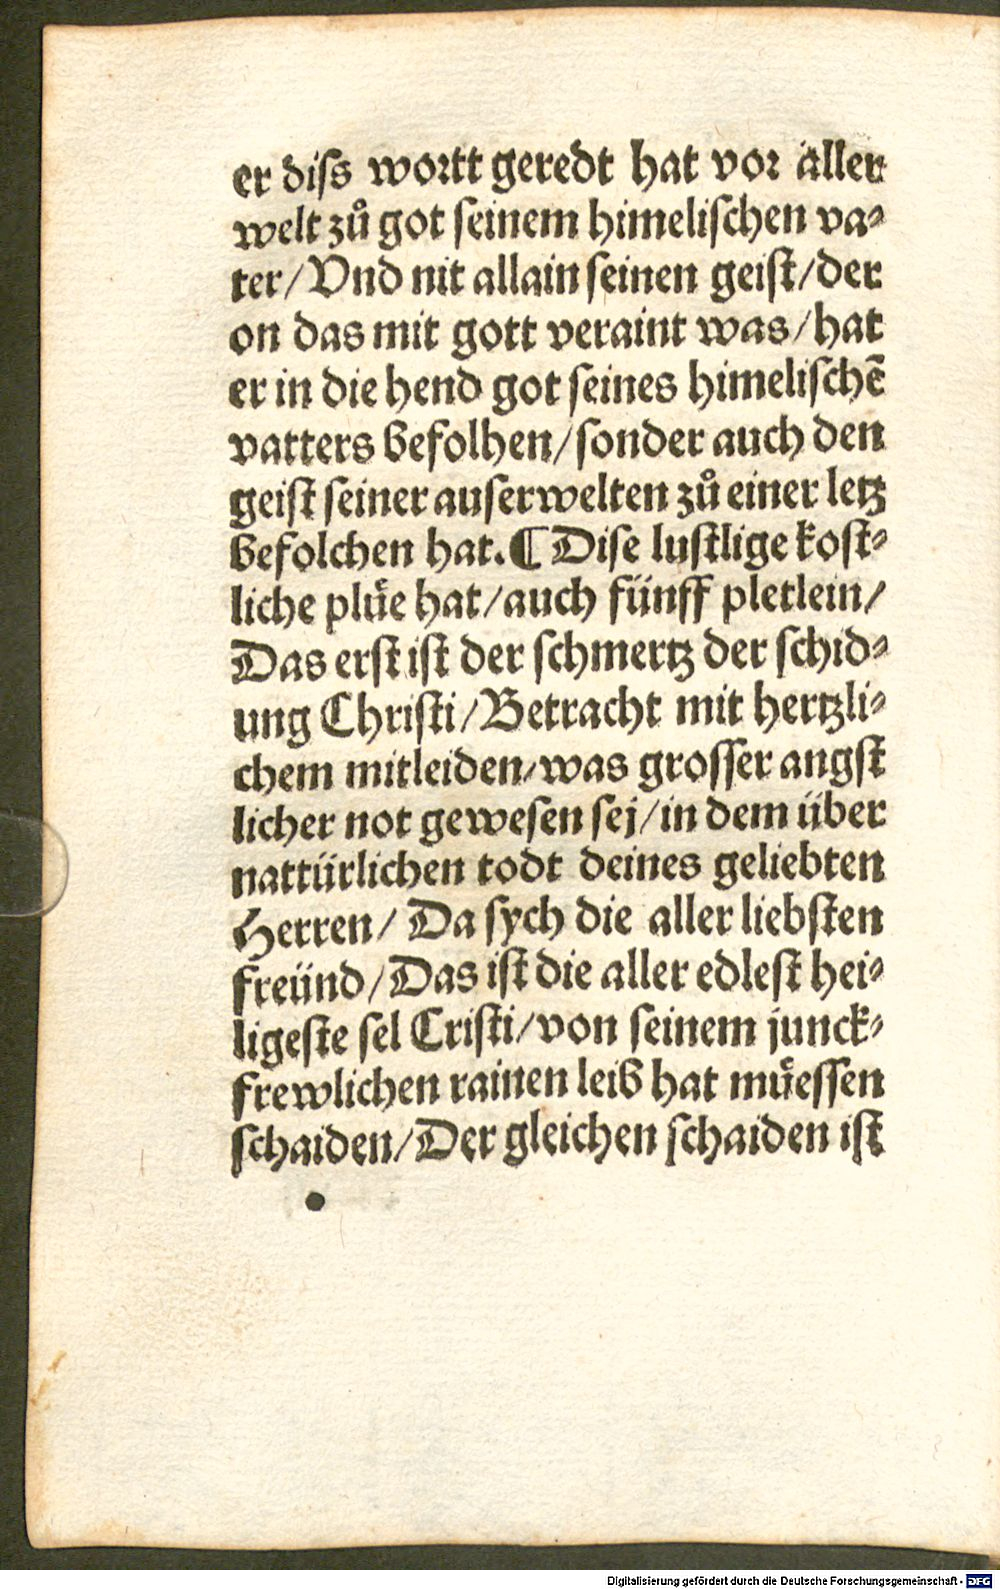 er diſs wortt geredt hat vor aller
welt zů got ſeinem himeliſchen va⸗
ter/Vnd nit allain ſeinen geiſt/der
on das mit gott veraint was/hat
er in die hend got ſeines himeliſchē
vatters befolhen/ſonder auch den
geiſt ſeiner auſerwelten zů einer letz
befolchen hat.¶ Diſe luſtlige koſt⸗
liche plůe hat/auch fünff pletlein/
Das erſt iſt der ſchmertz der ſchid⸗
ung Chriſti/Betracht mit hertzli⸗
chem mitleiden/was groſſer angſt
licher not geweſen ſej/in dem über
nattürlichen todt deines geliebten
Herren/ Da ſych die aller liebſten
freünd/Das iſt die aller edleſt hei⸗
ligeſte ſel Criſti/von ſeinem junck⸗
frewlichen rainen leib hat muͤeſſen
ſchaiden/Der gleichen ſchaiden iſt
Digitalisierung gefördert durch die Deutsche Forschungsgemeinschaft - DFG